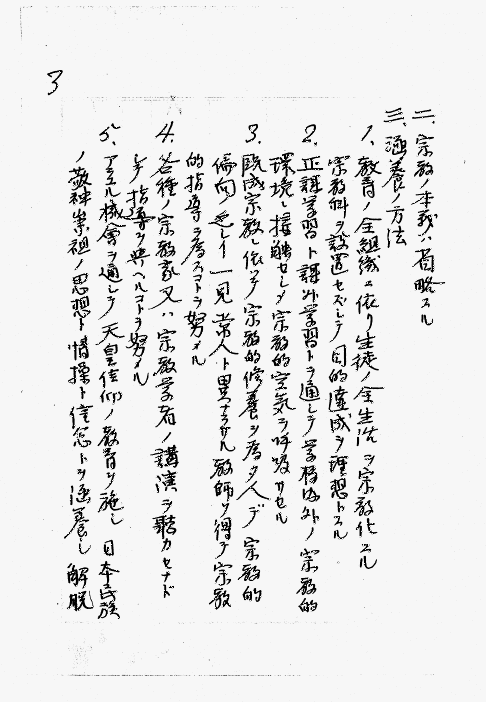 3
二、宗教ノ本義ハ省略スル
三、涵養ノ方法
1、教育ノ全組織ニ依リ生徒ノ全生活ヲ宗教化スル
宗教科ヲ設置セズシテ目的達成ヲ理想トスル
2、正課学習ト課外学習トヲ通シテ学校内外ノ宗教的
環境ニ接触セシメ宗教的空気ヲ呼吸サセル
3、既成宗教ニ依ッテ宗教的修養ヲ為タ人デ宗教的
偏向ノ無イ一見常人ト異ナラザル教師ヲ得テ宗教
的指導ヲ為スコトヲ努メル
4、各種ノ宗教家又ハ宗教学者ノ講演ヲ聴カセナド
シテ指導ヲ與ヘルコトヲ努メル
5、アラユル機會ヲ通シテ天皇信仰ノ教育ヲ施シ日本民族
ノ敬神崇祖ノ思想ト情操ト信念トヲ涵養シ解脱